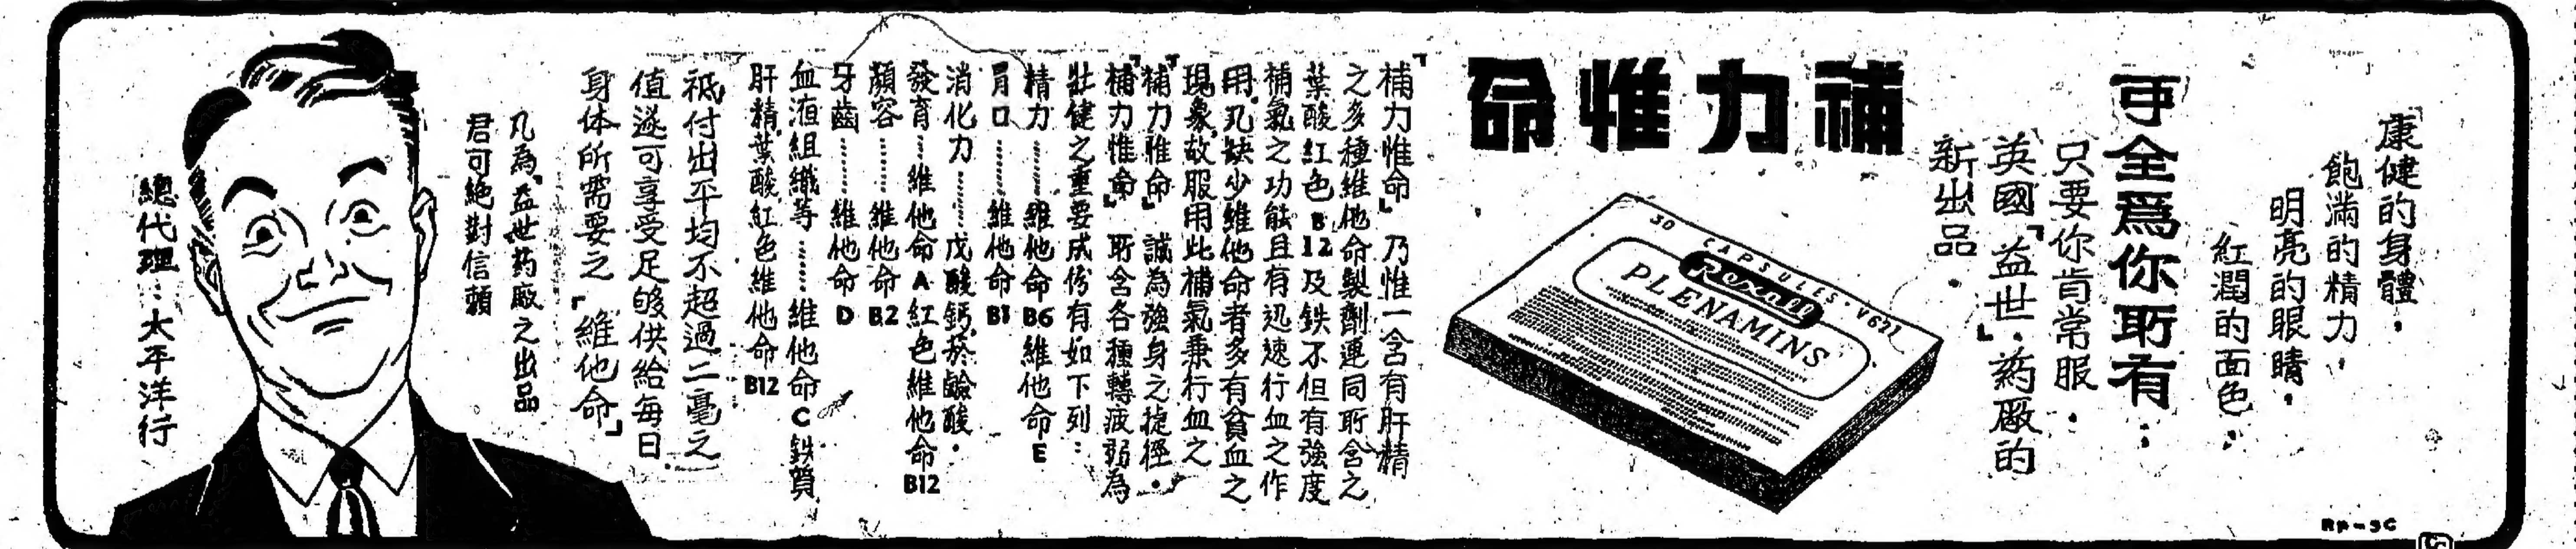 康健的身體，
飽滿的精力，
明亮的眼睛，
紅潤的面色，
可全爲你所有：
只要你肯常服，
英國「益世」药廠的
新出品．
補力惟命
30 CAPSULES V621
Rexall
PLENAMINS
「補力惟命」乃惟一含有肝精
之多種維他命製劑連同所含之
葉酸紅色B12及鉄不但有強度
補氣之功能且有迅速行血之作
用，凡缺少維他命者多有貧血之
現象，故服用此補氣兼行血之
「補力惟命」誠為強身之捷徑．
「補力惟命」所含各種轉疲弱為
壯健之重要成份有如下列：
精力……維他命B6維他命E
胃口……維他命B1
消化力……戊酸鈣，菸鹼酸．
發育……維他命A紅色維他命B12
顏容……維他命B2
牙齒……維他命D
血液組織等……維他命C鉄質
肝精，葉酸，紅色維他命B12
祗付出平均不超過二毫之
值遂可享受足够供給每日
身体所需要之「維他命」
凡為「益世」药廠之出品
君可絶對信賴
總代理：太平洋行
RP-9C